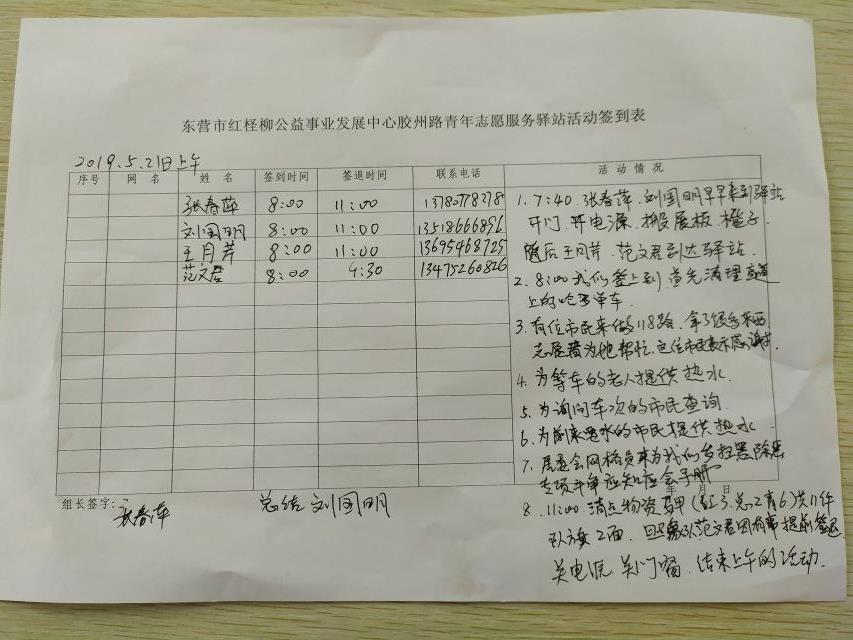 东营市红柽柳公益事业发展中心胶州路青年志愿服务驿站活动签到表
2019.5.21日上午
序号 网名 姓名 签到时间 签退时间 联系电话 活动情况
张春萍 8:00 11:00 13780778278
刘国明 8:00 11:00 13518666896
王月芹 8:00 11:00 13695468725
范文君 8:00 9:30 13475260826
1. 7:40. 张春萍、刘国明早早来到驿站
开门、开电源、搬展板、橙子、
随后王月芹、范文君到达驿站.
2. 8:00我们签上到首先清理
上的哈罗单车.
3. 有位市民来做118路、拿了很多东西
志愿者为他帮忙、这位市民表示感谢.
4. 为等车的老人提供热水.
5. 为询问车次的市民查询.
6. 为前来要水的市民提供热水.
7. 居委会网格员来为我们扫黑除恶
专项斗争应知应会手册
年 月 日
8. 11:00. 清点物资马甲(红3.总2青6)共11件
队旗2面. 范文君因有事提前签退
关电源、关门窗、结束上午的活动.
组长签字: 张春萍 总结 刘国明